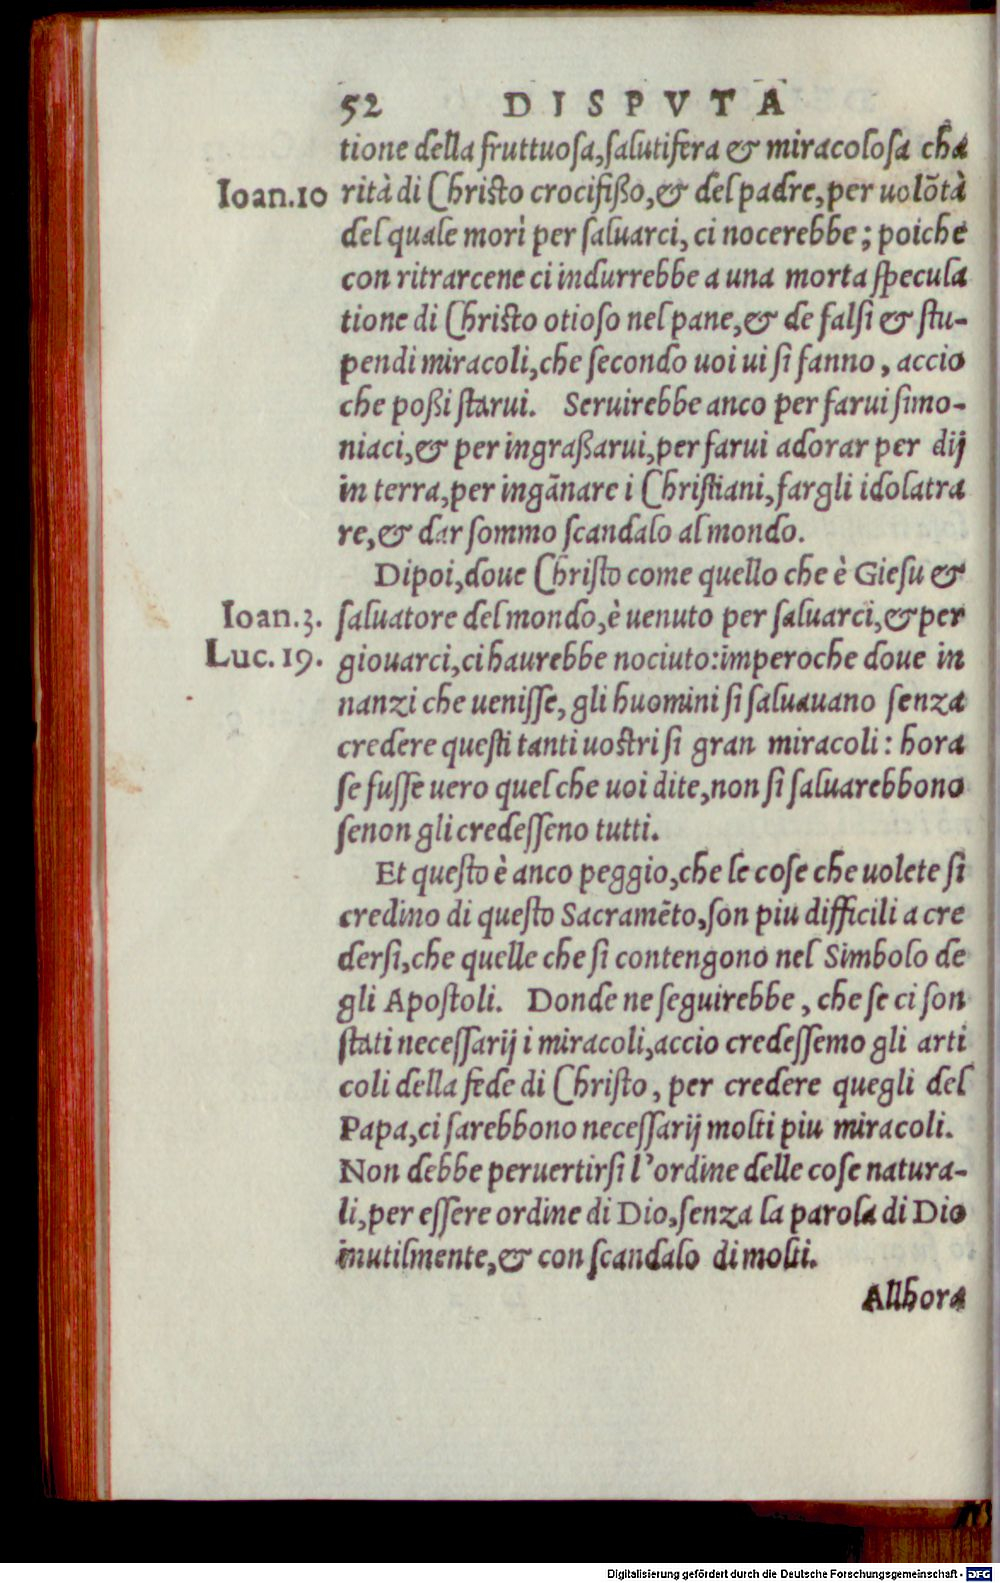 52 DISPVTA
tione della fruttuosa, salutifera & miracolosa cha
Ioan.10 rità di Christo crocifißo, & del padre, per uolõtà
del quale morì per saluarci, ci nocerebbe; poiche
con ritrarcene ci indurrebbe a una morta specula
tione di Christo otioso nel pane, & de falsi & stu-
pendi miracoli, che secondo uoi ui si fanno, accio
che poßi starui. Seruirebbe anco per farui simo-
niaci, & per ingraßarui, per farui adorar per dij
in terra, per ingãnare i Christiani, fargli idolatra
re, & dar sommo scandalo al mondo.
Dipoi, doue Christo come quello che è Giesu &
Ioan.3. saluatore del mondo, è uenuto per saluarci, & per
Luc.19. giouarci, ci haurebbe nociuto: imperoche doue in
nanzi che uenisse, gli huomini si saluauano senza
credere questi tanti uostri si gran miracoli: hora
se fusse uero quel che uoi dite, non si saluarebbono
senon gli credesseno tutti.
Et questo è anco peggio, che le cose che uolete si
credino di questo Sacramẽto, son piu difficili a cre
dersi, che quelle che si contengono nel Simbolo de
gli Apostoli. Donde ne seguirebbe, che se ci son
stati necessarij i miracoli, accio credessemo gli arti
coli della fede di Christo, per credere quegli del
Papa, ci sarebbono necessarij molti piu miracoli.
Non debbe peruertirsi l'ordine delle cose natura-
li, per essere ordine di Dio, senza la parola di Dio
inutilmente, & con scandalo di molti.
Allhora
Digitalisierung gefördert durch die Deutsche Forschungsgemeinschaft - DFG